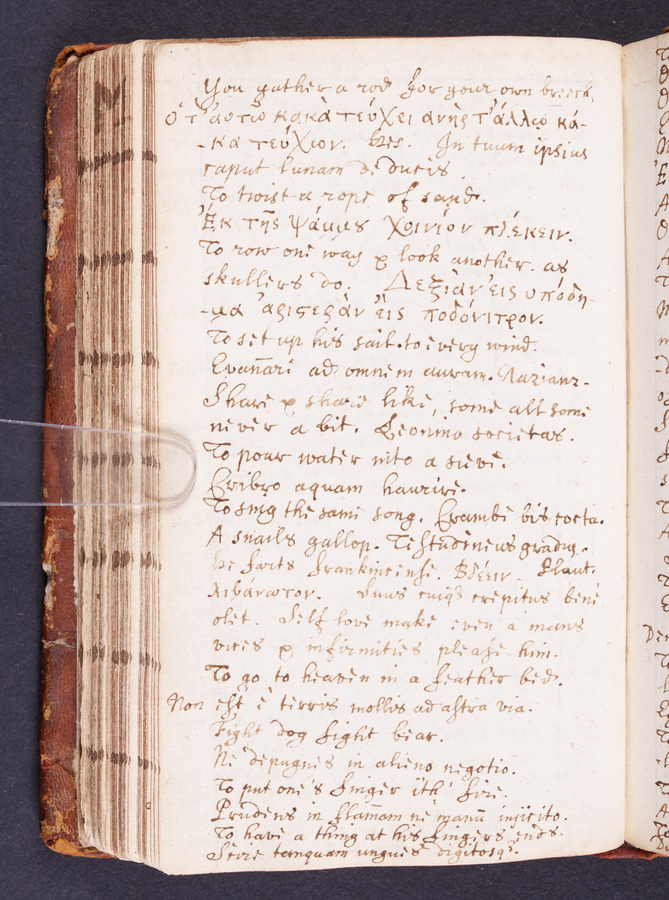 You gather a rod for your own breech.
Ὁ τ' αυτῷ κακὰ τεύχει ανὴρ τ' άλλῳ κά-
-κα τεύχων. Hes. In tuum ipsius
caput lunam deducis.
To twist a rope of sand.
Ἐκ τῆς ψάμμȣ χοινίον πλέκειν.
To row one way & look another. as
skullers do. Δεξιὰν εις υπόδη-
-μα ἀριϛερὰν εἰς ποδόνιτρον.
To set up his sail to every wind.
Evannare ad omnem auram. Nazianz.
Share & share like, some all some
never a bit. Leonina societas.
To pour water into a sieve.
Cribro aquam haurire.
To sing the same song. Crambe bis cocta.
A snails gallop. Testudineus gradus.
He farts frankincense. Βδέειν Plaut.
λιβάνωτον. Suus cuiq3 crepitus bene
olet. Self love make even a mans
vices & infirmities please him.
To go to heaven in a feather bed.
Non est è terris mollis ad astra via.
Fight dog fight bear.
Ne depugnes in alieno negotio.
To put one's finger ith' fire.
Prudens in flam̄am ne manū injicito.
To have a thing at his fingers ends.
Scire tanquam ungues digitosq3.